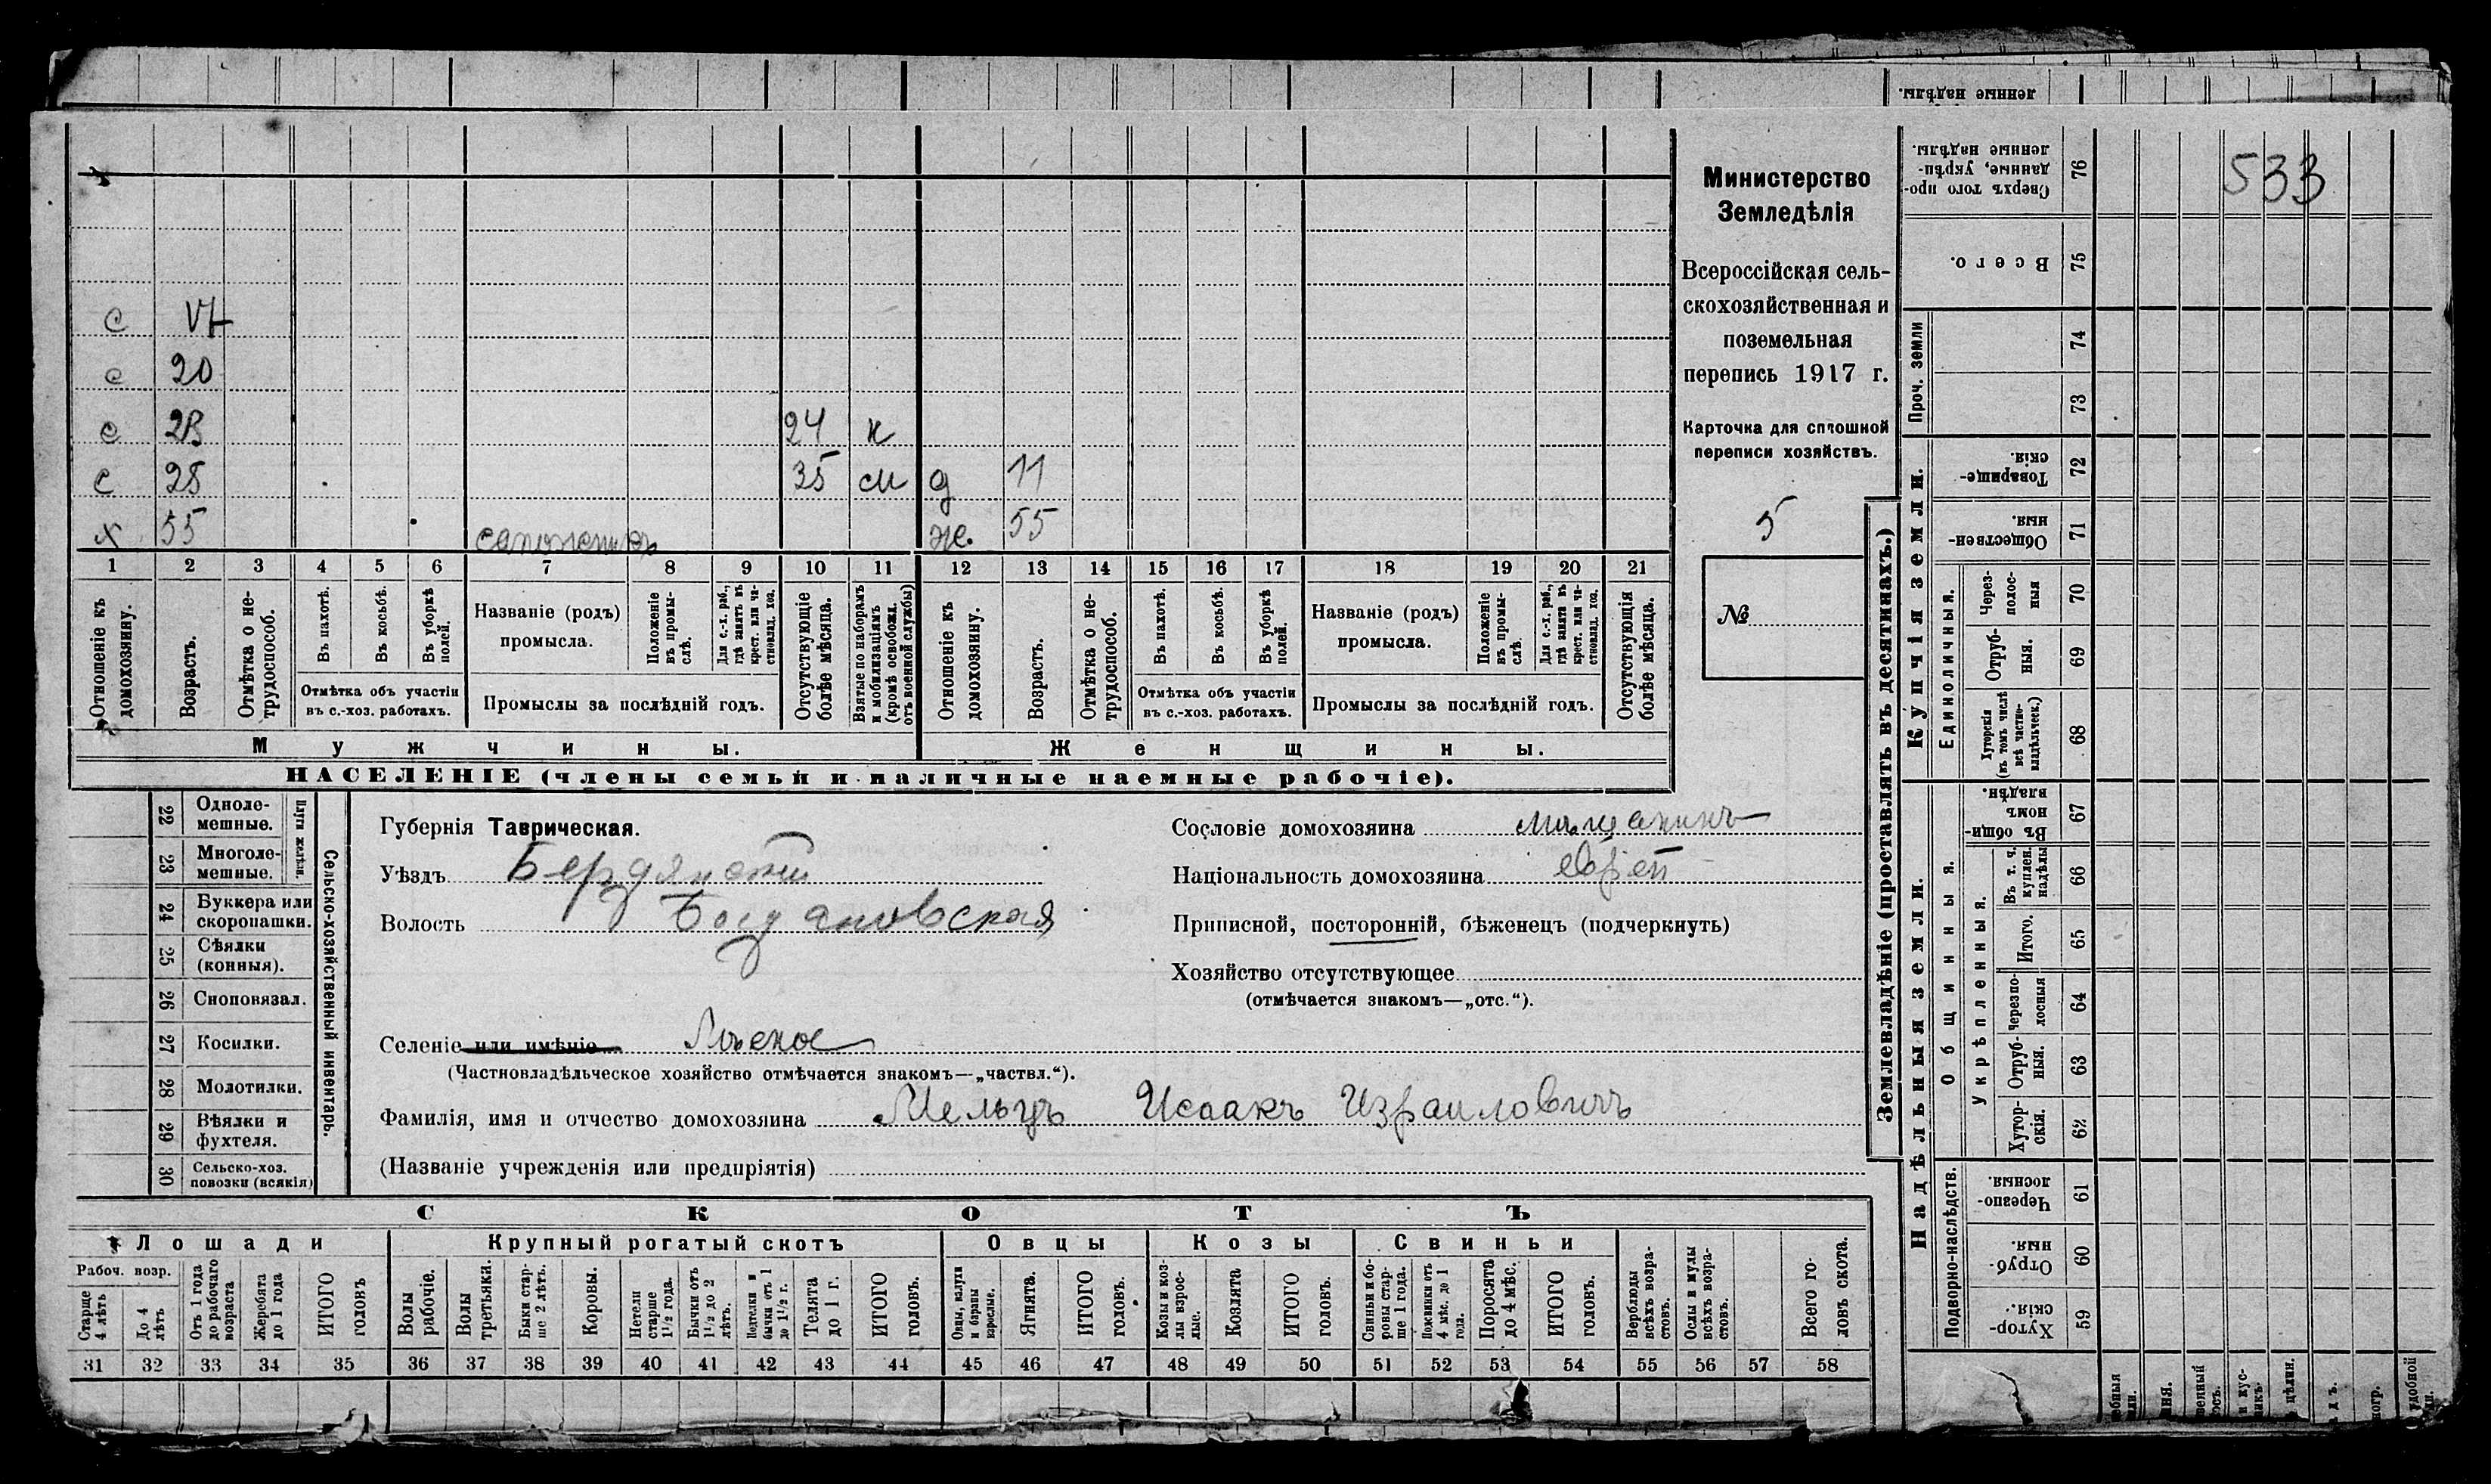 533
Министерство
Земледѣлія
Всероссійская сель-
скохозяйственная и
поземельная
перепись 1917 г.
Карточка для сплошной
переписи хозяйствъ.
5
№
с
с 20
с 23 24 н
с 28 35 м д 11
х 55 сапожникъ ж. 55
1 2 3 4 5 6 7 8 9 10 11 12 13 14 15 16 17 18 19 20 21
Отношеніе къ домохозяину.
Возрастъ.
Отмѣтка о не-трудоспособ.
Въ пахотѣ.
Въ косьбѣ.
Въ уборкѣ полей.
Отмѣтка объ участіи
въ с.-хоз. работахъ.
Названіе (родъ)
промысла.
Положеніе въ промы-слѣ.
Для с.-х. раб., гдѣ занятъ въ крест. или ча-стновлад. хоз.
Промыслы за послѣдній годъ.
Отсутствующіе болѣе мѣсяца.
Взятые по наборамъ и мобилизаціямъ (кромѣ освобожд. отъ военной службы)
Отношеніе къ домохозяину.
Возрастъ.
Отмѣтка о не-трудоспособ.
Въ пахотѣ.
Въ косьбѣ.
Въ уборкѣ полей.
Отмѣтка объ участіи
въ с.-хоз. работахъ.
Названіе (родъ)
промысла.
Положеніе въ промы-слѣ
Для с.-х. раб., гдѣ занятъ въ крест. или ча-стновлад. хоз.
Промыслы за послѣдній годъ.
Отсутствующія болѣе мѣсяца.
Мужчины.
Женщины.
НАСЕЛЕНІЕ (члены семьи и наличные наемные рабочіе).
Сельско-хозяйственный инвентарь.
Плуги желѣзн.
22 Одноле-мешные.
23 Многоле-мешные.
24 Буккера или скоропашки.
25 Сѣялки (конныя).
26 Сноповязал.
27 Косилки.
28 Молотилки.
29 Вѣялки и фухтеля.
30 Сельско-хоз. повозки (всякія)
Губернія Таврическая.
Уѣздъ Бердянскій
Волость Богдановская
Селеніе или имѣніе
(Частновладѣльческое хозяйство отмѣчается знакомъ—„частвл.“).
Фамилія, имя и отчество домохозяина Мельцъ Исаакъ Израиловичъ
(Названіе учрежденія или предпріятія)
Сословіе домохозяина мѣщанинъ
Національность домохозяина еврей
Приписной, посторонній, бѣженецъ (подчеркнуть)
Хозяйство отсутствующее
(отмѣчается знакомъ—„отс.“).
СКОТЪ
Лошади
Крупный рогатый скотъ
Овцы
Козы
Свиньи
Рабоч. возр.
Старше 4 лѣтъ
До 4 лѣтъ
Отъ 1 года до рабочаго возраста
Жеребята до 1 года
ИТОГО головъ
Волы рабочіе.
Волы третьяки.
Быки стар-ше 2 лѣтъ.
Коровы.
Нетели старше 1½ года.
Бычки отъ 1½ до 2 лѣтъ.
Подтелки и бычки отъ 1 до 1½ г.
Телята до 1 г.
ИТОГО головъ.
Овцы, валухи и бараны взрослые.
Ягнята.
ИТОГО головъ.
Козы и коз-лы взрос-лые.
Козлята
ИТОГО головъ.
Свиньи и бо-ровы стар-ше 1 года.
Подсвинки отъ 4 мѣс. до 1 года.
Поросята до 4 мѣс.
ИТОГО головъ.
Верблюды всѣхъ возра-стовъ.
Ослы и мулы всѣхъ возра-стовъ.
Всего го-ловъ скота.
31 32 33 34 35 36 37 38 39 40 41 42 43 44 45 46 47 48 49 50 51 52 53 54 55 56 57 58
Землевладѣніе (проставлять въ десятинахъ.)
Надѣльныя земли.
Купчія земли.
Проч. земли
Подворно-наслѣдств.
Общинныя.
Укрѣпленныя.
Единоличныя.
ленные надѣлы.
76 Сверхъ того про-данные, укрѣп-ленные надѣлы.
75 Всего.
74
73
72 Товарище-скія.
71 Обществен-ныя.
70 Через-полос-ныя
69 Отруб-ныя.
68 Хуторскія (въ томъ числѣ всѣ частно-владѣльческ.)
67 Въ общи-номъ владѣн.
66 Въ т. ч. куплен. надѣлы
65 Итого.
64 Черезпо-лосныя
63 Отруб-ныя.
62 Хутор-скія.
61 Черезпо-лосныя.
60 Отруб-ныя.
59 Хутор-скія.